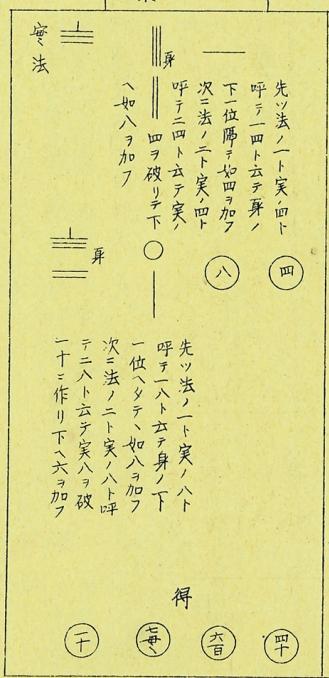 先ツ法ノ一ト実ノ四ト
呼テ一四ト云テ身ノ
下一位隔テ如四ヲ加フ
次ニ法ノ二ト実ノ四ト
呼テ二四ト云テ実ノ
四ヲ破リテ下
ヘ如八ヲ加フ
四
八
身
法
身
先ツ法ノ一ト実ノ八ト
呼テ一八ト云テ身ノ下
一位ヘダテヽ如八ヲ加フ
次ニ法ノ二ト実ノ八ト呼
テ二八ト云テ実八ヲ破
一十ニ作リ下ヘ六ヲ加フ
得
四十
六百
一十